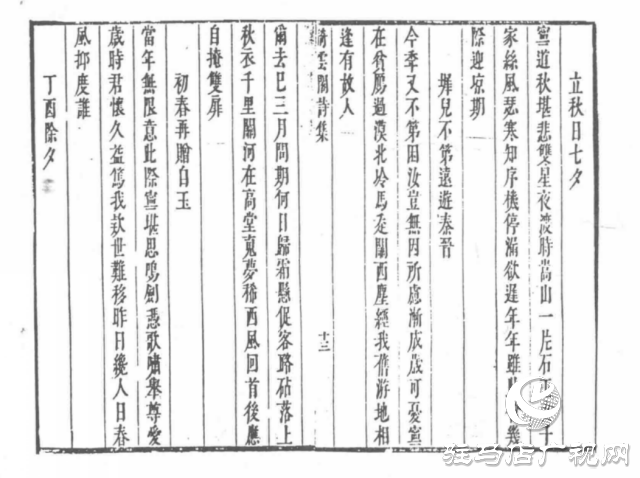 立秋日七夕
寧道秋堪悲雙星夜渡時嵩山一片石 千
家絲風瑟寒知序機停漏欲遲年年雖 幾
際迎凉期
擇兒不第遠遊秦晉
今季又不第困汝豈無因所慮漸成歲可憂寧
在貧鴈過漠北冷馬走關西塵經我舊游地相
逢有故人
雲閣詩集
十三
爾去已三月問期何日歸霜懸促客路砧落上
秋衣千里關河在高堂寛夢稀西風回首後應
自掩雙扉
初春再贈白玉
當年無限意此際寧堪思鳴劍憑歌嘯舉尊愛
歲時君懷久益篤我欵世難移昨日纔人日春
風抑度誰
丁酉除夕
驻马店广视网